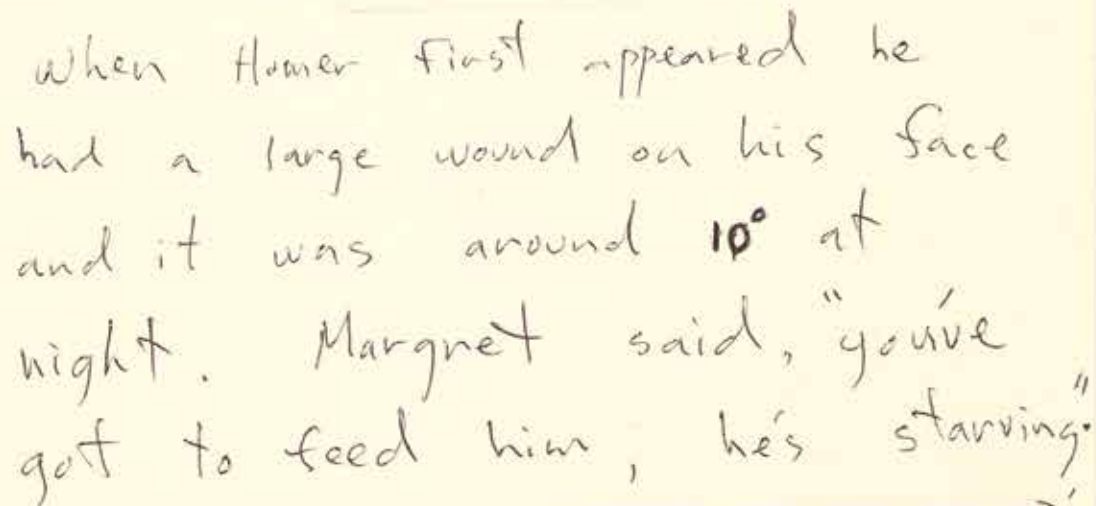 when Homer first appeared he
had a large wound on his face
and it was around 10° at
night. Margret said, "you've
got to feed him, he's starving."